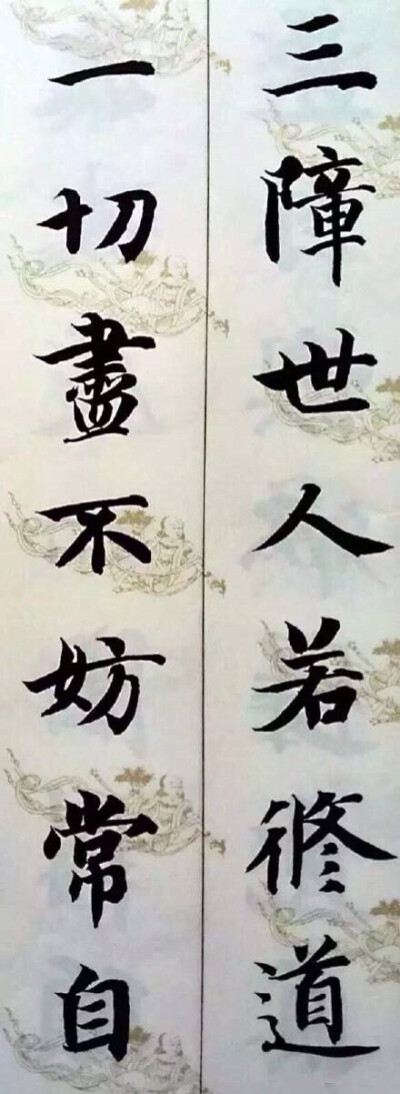 三障世人若修道
一切盡不妨常自